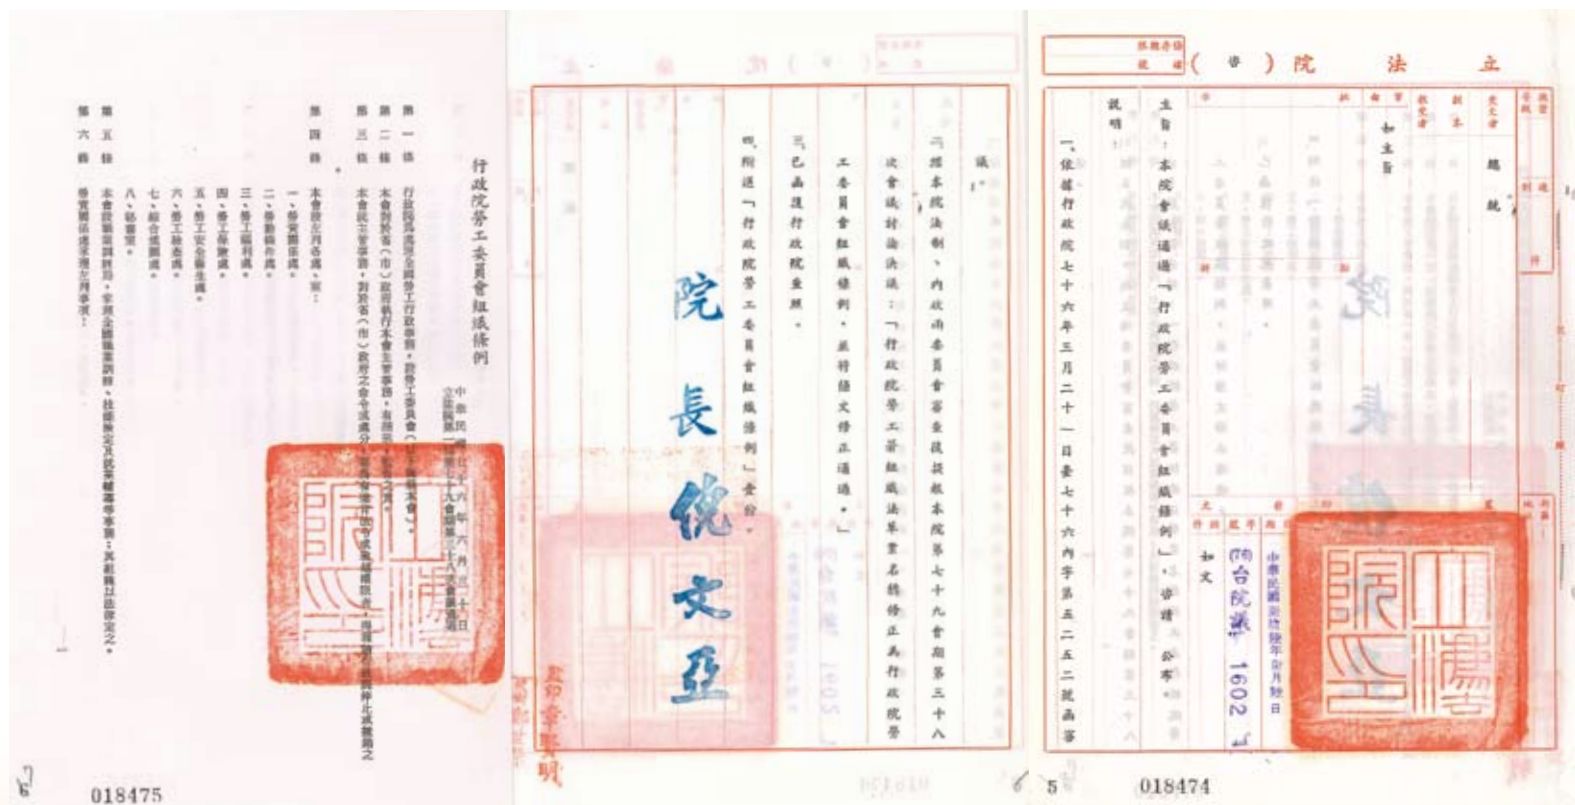 立法院(咨)
檔號
保存期限
受文者
總統
副本
收受者
如主旨
主旨：本院會議通過「行政院勞工委員會組織條例」，咨請公布。
說明：
一、依據行政院七十六年三月二十一日臺七十六內字第五二五二號函審
(76)台院議字 1602
如文
立法院印
018474
5
議。
二、經本院法制、內政兩委員會審查後提報本院第七十九會期第三十八
次會議討論決議：「行政院勞工署組織法草案名稱修正為行政院勞
工委員會組織條例，並將條文修正通過。」
三、已函復行政院查照。
四、附送「行政院勞工委員會組織條例」壹份。
院長倪文亞
行政院勞工委員會組織條例
中華民國七十六年六月三十日
立法院第一屆第七十九會期第三十八次會議通過
第一條 行政院為處理全國勞工行政事務，設勞工委員會（以下簡稱本會）。
第二條 本會對於省（市）政府執行本會主管事務，有指示、監督之責。
第三條 本會就主管事務，對於省（市）政府之命令或處分，認為有違背法令或逾越權限者，得報請行政院停止或撤銷之
第四條 本會設左列各處、室：
一、勞資關係處。
二、勞動條件處。
三、勞工福利處。
四、勞工保險處。
五、勞工安全衛生處。
六、勞工檢查處。
七、綜合規劃處。
八、秘書室。
第五條 本會設職業訓練局，掌理全國職業訓練、技能檢定及就業輔導等事務；其組織以法律定之。
第六條 勞資關係處掌理左列事項：
立法院印
一
018475